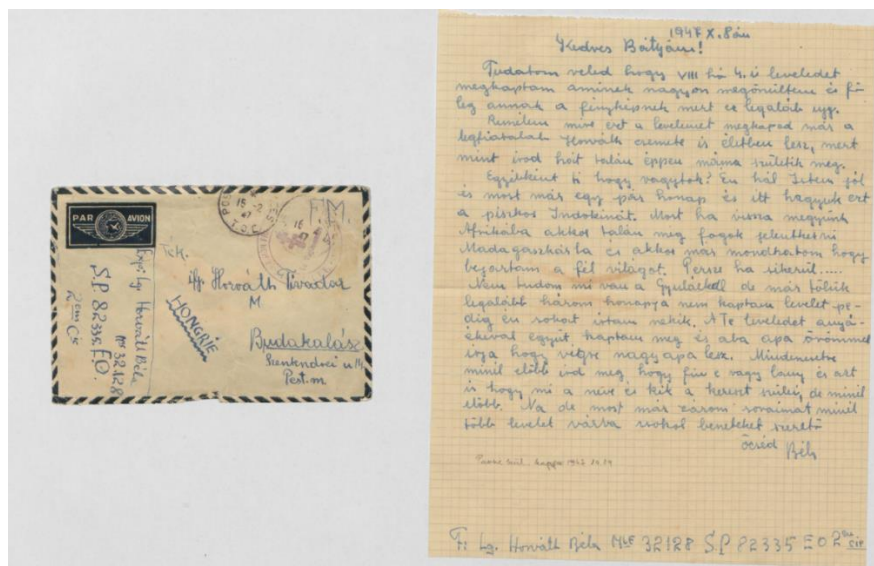 PAR AVION
FM.
POSTES
T.O.E.
Exp: Lg Horváth Béla
Mle 32128
S.P 82335 E.O.
2eme Cie
Tek.
Horváth Tivadar
M
HONGRIE
Budakalász
Szentendrei u 14
Pest.m
1947 X. 8án
Kedves Bátyám!
Tudatom veled hogy VIII hó 4.i leveledet
megkaptam aminek nagyon megörültem és fő
leg annak a fényképnek mert ez legalább
Remélem mire ezt a levelemet megkapod már a
legfiatalabb Horváth csemete is életben lesz, mert
mint írod hát talán éppen máma születik meg.
Egyébként ti hogy vagytok? Én hál Istem jól
és most már egy pár hónap és itt hagyjuk ezt
a piszkos Indokinát. Most ha vissza megyünk
Afrikába akkor talán meg fogok jelentkezni
Madagaszkárba és akkor már mondhatom hogy
bejártam a fél világot. Persze ha sikerül.....
Nem tudom mi van a Gyuláékkal de már tőlük
legalább három hónapja nem kaptam levelet pe-
dig én sokat írtam nekik. A Te leveledet anyá-
ékéval együtt kaptam meg és abba apa örömmel
írja hogy végre nagyapa lesz. Mindenesetre
minél előbb írd meg hogy fiú e vagy lány és azt
is hogy mi a neve és kik a kereszt szülei, de minél
előbb. Na de most már zárom soraimat minél
több levelet várva csókol benneteket szerető
öcséd Béla
F: Lg. Horváth Béla Mle 32128 S.P 82335 E.O 2eme cie